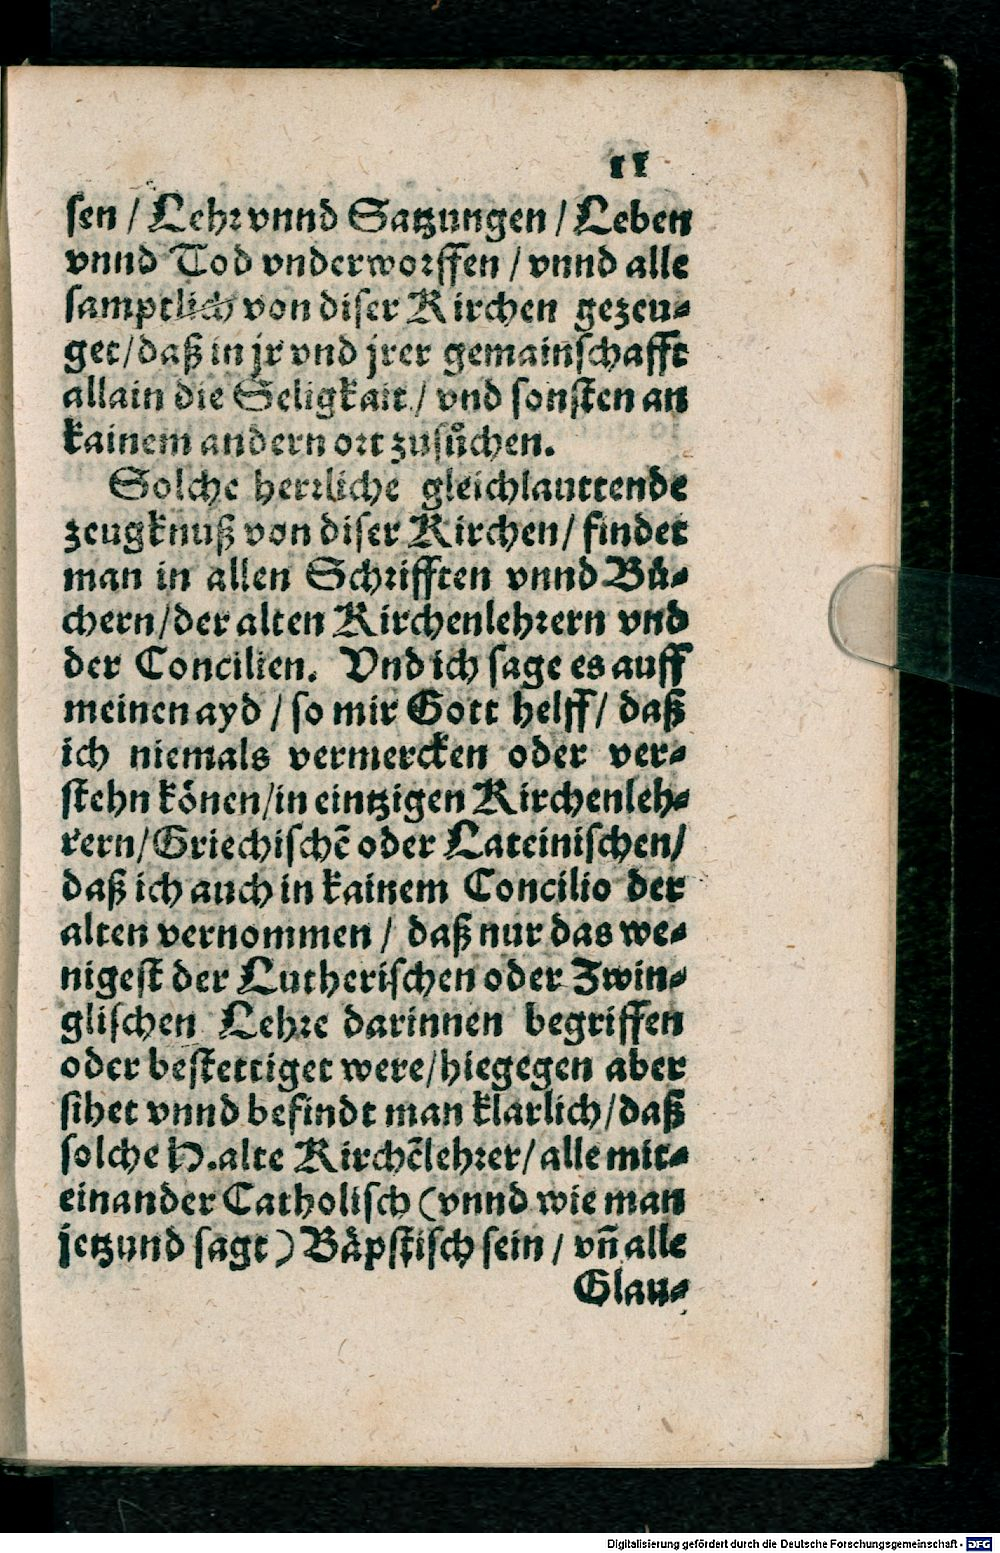 11
sen / Lehr vnnd Satzungen / Leben
vnnd Tod vnderworffen / vnnd alle
samptlich von diser Kirchen gezeu-
get / daß in jr vnd jrer gemainschafft
allain die Seligkait / vnd sonsten an
kainem andern ort zusůchen.
Solche herrliche gleichlauttende
zeugknuß von diser Kirchen / findet
man in allen Schrifften vnnd Bü-
chern / der alten Kirchenlehrern vnd
der Concilien. Vnd ich sage es auff
meinen ayd / so mir Gott helff / daß
ich niemals vermercken oder ver-
stehn könen / in eintzigen Kirchenleh-
rern / Griechischẽ oder Lateinischen /
daß ich auch in kainem Concilio der
alten vernommen / daß nur das we-
nigest der Lutherischen oder Zwin-
glischen Lehre darinnen begriffen
oder bestettiget were / hiegegen aber
sihet vnnd befindt man klarlich / daß
solche H. alte Kirchẽlehrer / alle mit-
einander Catholisch (vnnd wie man
jetzund sagt) Bäpstisch sein / vñ alle
Glau-
Digitalisierung gefördert durch die Deutsche Forschungsgemeinschaft - DFG